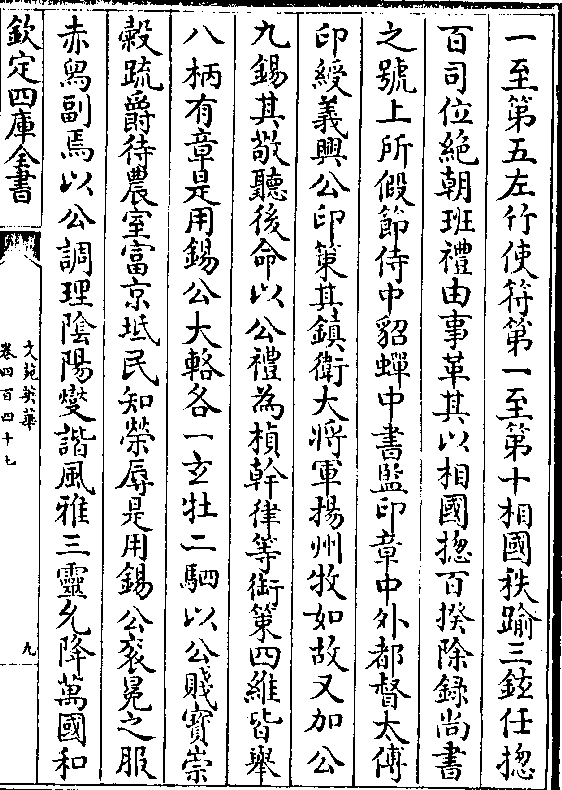 一至第五左竹使符第一至第十相國秩踰三鉉任揔
百司位絶朝班禮由事革其以相國揔百揆除録尚書
之號上所假節侍中貂蟬中書監印章中外都督太傅
印綬義興公印策其鎮衛大將軍揚州牧如故又加公
九錫其敬聽後命以公禮為楨幹律等銜策四維皆舉
八柄有章是用錫公大輅各一玄牡二駟以公賤寳崇
榖疏爵待農室富京坻民知榮辱是用錫公衮冕之服
赤舄副焉以公調理隂陽燮諧風雅三靈允降萬國和
欽定四庫全書
文苑英華
卷四百四十七
九